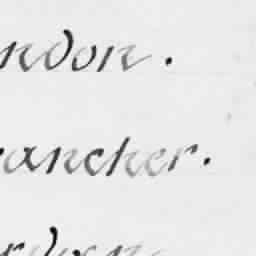 ndon.
ancher.